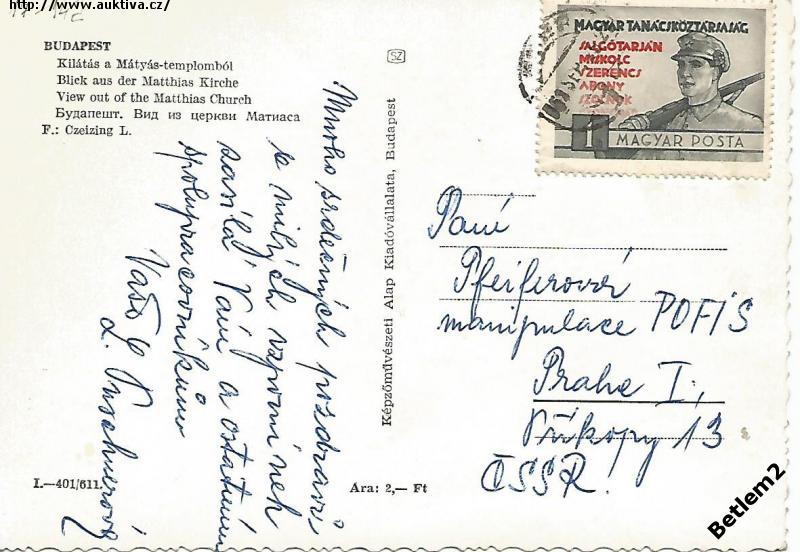 http://www.auktiva.cz/
BUDAPEST
Kilátás a Mátyás-templomból
Blick aus der Matthias Kirche
View out of the Matthias Church
Будапешт. Вид из церкви Матиаса
F.: Czeizing L.
Mnoho srdečných pozdravů
a milých vzpomínek
zasílá Vám a ostatním
spolupracovníkům
Vaše
L.
I.—401/611.
SZ
Képzőművészeti Alap Kiadóvállalata, Budapest
Ara: 2,— Ft
MAGYAR TANÁCSKÖZTÁRSASÁG
SALGÓTARJÁN
MISKOLC
SZERENCS
ABONY
SZOLNOK
1
MAGYAR POSTA
Paní
Pfeiferová
manipulace POFIS
Praha I,
Příkopy 13
ČSSR.
Betlem2